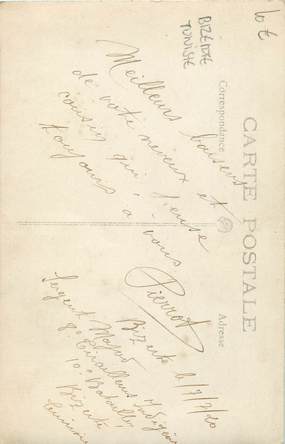 10 €
BIZERTE
TUNISIE
CARTE POSTALE
Correspondance
Adresse
Meilleurs baisers
de votre neveux et
cousin qui pense
toujours à vous
Pierrot
Bizerte le 1/7/20
Sergent Major
8e Tirailleurs Indigènes
10e
Bizerte
Tunisie